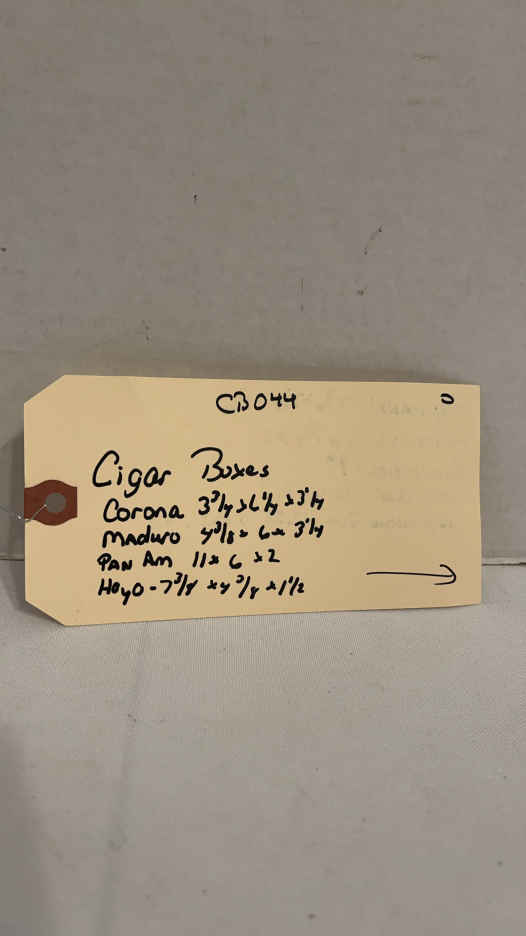 CB044
0
Cigar Boxes
Corona 3 3/4 x 6 1/4 x 3 1/4
Maduro 4 3/8 x 6 x 3 1/4
Pan Am 11 x 6 x 2
Hoyo - 7 3/4 x 4 3/4 x 1 1/2